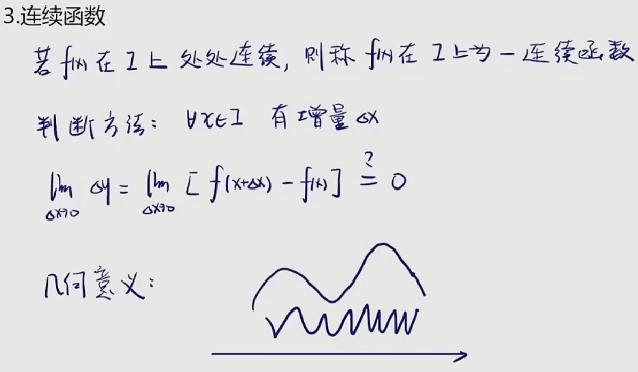 3.连续函数
若 f(x) 在 I 上 处处连续, 则称 f(x) 在 I 上为一连续函数
判断方法: ∀x∈I 有增量 Δx
lim Δx→0 Δy = lim Δx→0 [ f(x+Δx) - f(x) ] ?= 0
几何意义: